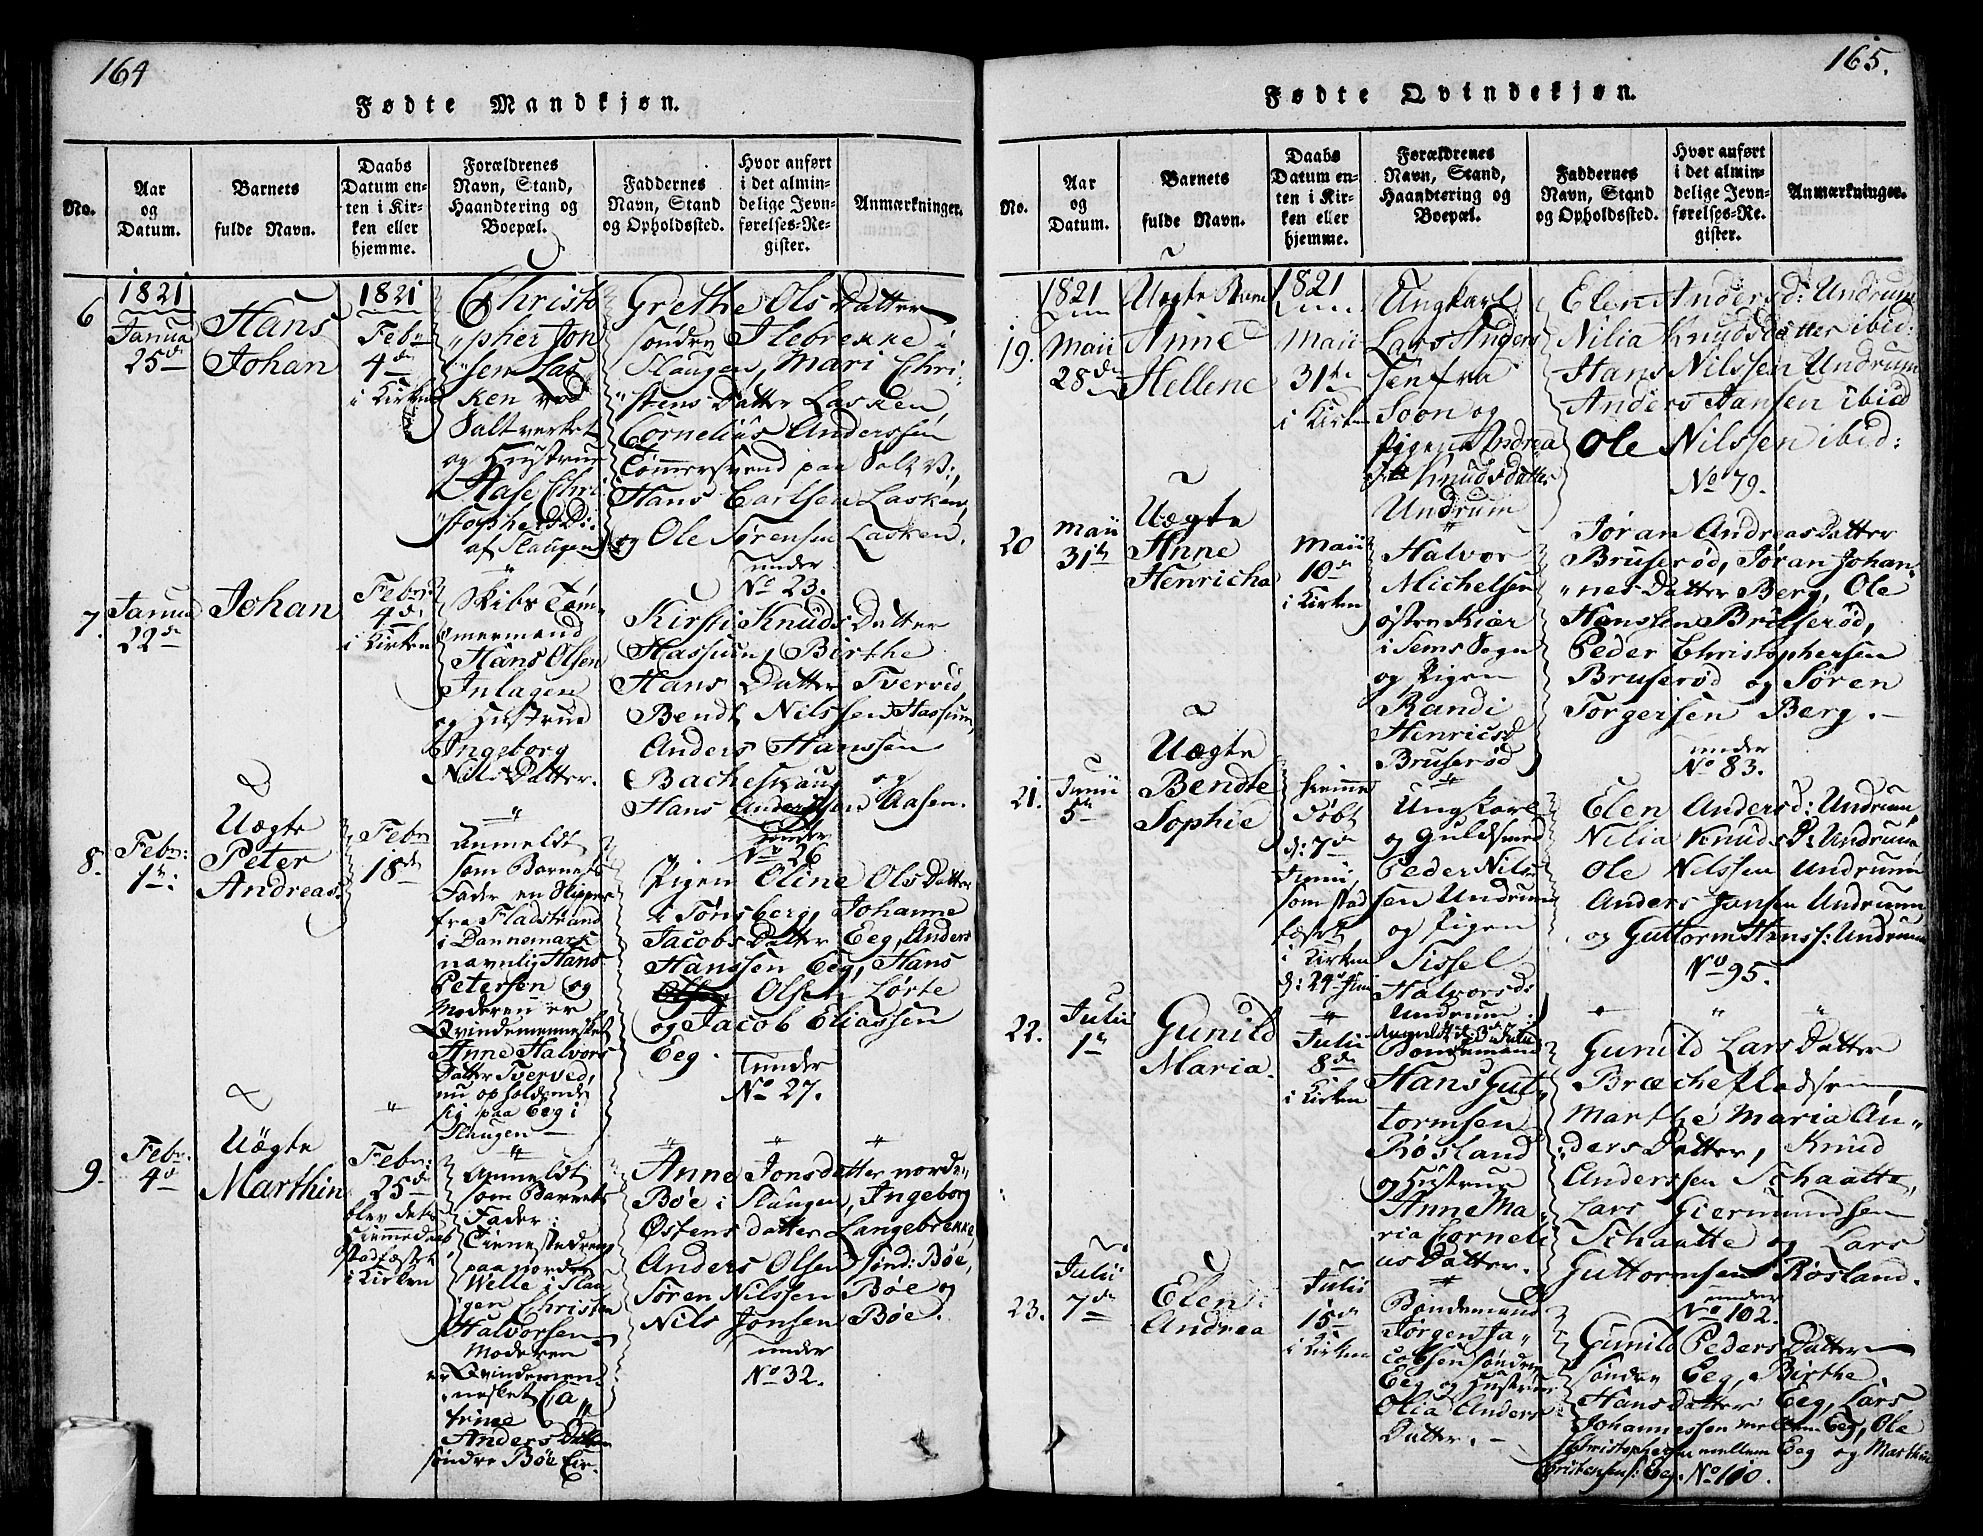 164
Fødte Mandkjøn.
No.
Aar
og
Datum.
Barnets
fulde Navn.
Daabs
Datum en-
ten i Kir-
ken eller
hjemme.
Forældrenes
Navn, Stand,
Haandtering og
Boepæl.
Faddernes
Navn, Stand
og Opholdssted.
Hvor anført
i det almin-
delige Jevn-
førelses-Re-
gister.
Anmærkninger.
6
1821
Janua
25de
Hans
Johan
1821
Febr
4de
i Kirken
Christo
"pher Jon
"sen Las
ken ved
Saltverket
og Hustrue
Aase Chri
"stophersD:
af Slaugen
Grethe Ols Datter
søndre Ilebrekke i
Slaugen, Mari Chri-
"stens Datter Lasken,
Cornelius Anderssen
Tømmersvend paa Salt V:,
Hans Carlsen Lasken,
og Ole Sørensen Lasken.
under
No 23.
7.
Janua
22de
Johan
Febr:
4de
i Kirken
Skibs Tøm-
mermand
Hans Olsen
Inlagen
og Hustrue
Ingeborg
Nils Datter.
Kirsti Knuds Datter
Hassum, Birthe
Hans Datter Tverved,
Bendt Nilssen Hassum,
Anders Hanssen
Bacheskaug og
Hans Anderssen Aasen.
under
No 26
8.
Febr:
1te:
Uægte
Peter
Andreas.
Febr
18de
"
Anmeldt
som Barnets
Fader en Skipper
fra Fladstrand
i Dannemark
navnlig Hans
Petersen og
Moderen er
Qvindemennesket
Anne Halvors
Datter Tverved,
nu opholdende
sig paa Eeg i
Slaugen
Pigen Oline Ols Datter
i Tønsberg, Johanne
Jacobs Datter Eeg, Anders
Hanssen Eeg, Hans
Olsen Lørte
og Jacob Eliassen
Eeg.
under
No 27.
9.
Febr.
4de
Uægte
Marthin
Febr:
25de
blev dets
Hiemmedaab
stadfæstet
i Kirken
"
Anmeldt
som Barnets
Fader:
Tienestedreng
paa nordre
Welle i Slau
gen Christen
Halvorsen
Moderen
er Qvindemen
nesket Ca
trine
Anders Datter
søndre Bøe
Anne Jonsdatter nordre
Bøe i Slaugen, Ingeborg
Østens datter Langebrekke,
Anders Olsen Sønd: Bøe,
Søren Nilssen Bøe og
Nils Jonsen Bøe.
under
No 32.
165.
Fødte Qvindekjøn.
No.
Aar
og
Datum.
Barnets
fulde Navn.
Daabs
Datum en-
ten i Kir-
ken eller
hjemme.
Forældrenes
Navn, Stand,
Haandtering og
Boepæl.
Faddernes
Navn, Stand
og Opholdssted.
Hvor anført
i det almin-
delige Jevn-
førelses-Re-
gister.
Anmærkninger.
19.
1821
Maii
28de
Uægte Barn
Anne
Hellene
1821
Maii
31te
i Kirken
Ungkarl
Lars Anders
sen fra
Soon og
Pigen Andrea
Knudsdatter
Undrum
Elen Andersd: Undrum
Nilia Knudsdatter ibid:
Hans Nilssen Undrum
Anders Jansen ibid
Ole Nilssen ibid:
No 79.
20
Maii
31te
Uægte
Anne
Henricha
Maii
10de
i Kirken
"
Halvor
Michelsen
østen Kiær
i Sems Sogn
og Pigen
Randi
Henricsd
Bruserød
Jøran Andreas Datter
Bruserød, Jøran Johan-
"nes Datter Berg, Ole
Hanssen Bruserød,
Peder Christophersen
Bruserød og Søren
Torgersen Berg.
under
No 83.
21.
Junii
5te
Uægte
Bendte
Sophie
hiemme
Døbt
d: 7de
Junii
som stad
fæstet
i Kirken
d: 24de Juni
"
Ungkarl
og Guldsmed
Peder Nils
sen Undrum
og Pigen
Sissel
Halvorsd:
Undrum.
Elen Andersd: Undrum,
Nilia Knuds D: Undrum,
Ole Nilssen Undrum
Anders Jansen Undrum
og Guttorm Hanss: Undrum
No 95.
22.
Julii
1te
Gunild
Maria.
Julii
8de
i Kirken
anmeldt d: 3de Julii
Bondemand
Hans Gut
tormsen
Røsland
og Hustrue
Anne Ma-
ria Corneli
us Datter.
Gunild Lars Datter
Brække pladsen,
Marthe Maria An-
ders Datter, Knud
Anderssen Schaatte,
Lars Giermundsen
Schaatte og Lars
Guttormsen Røsland.
under
No 102.
23.
Julii
7de
Elen
Andrea
Julii
15de
i Kirken
"
Bondemand
Jørgen Ja-
cobsen søndre
Eeg og Hustrue
Olia Anders
Datter.
Gunild Peders Datter
søndre Eeg, Birthe
Hans Datter Eeg, Lars
Johannessen mellem Eeg, Ole
Christophersen mellem Eeg og Marthin
Cristensens: Eeg. No 110.